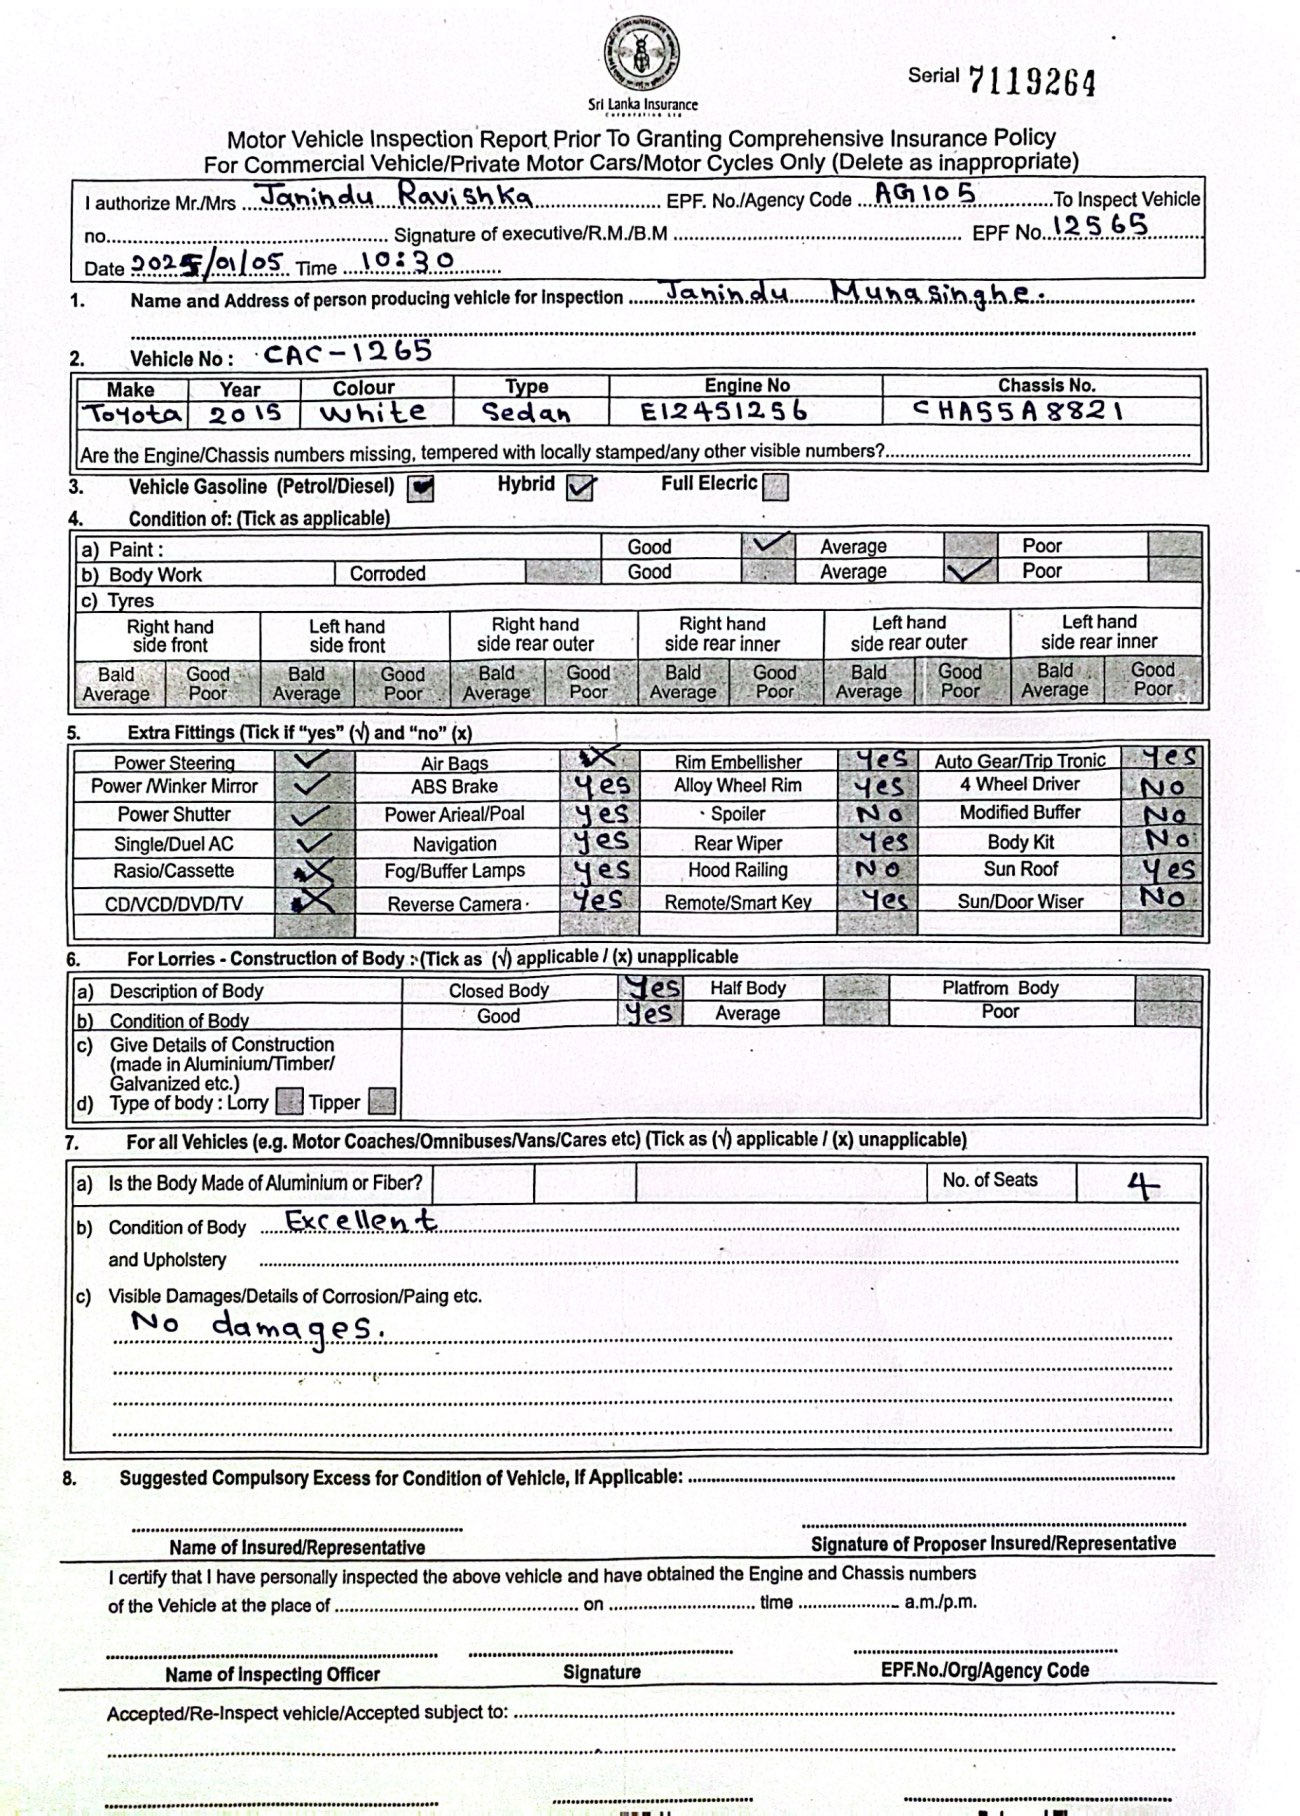 Sri Lanka Insurance
Corporation Ltd
Serial 7119264
Motor Vehicle Inspection Report Prior To Granting Comprehensive Insurance Policy
For Commercial Vehicle/Private Motor Cars/Motor Cycles Only (Delete as inappropriate)
I authorize Mr./Mrs Janindu Ravishka EPF. No./Agency Code AG105 To Inspect Vehicle
no. Signature of executive/R.M./B.M EPF No. 12565
Date 2025/01/05 Time 10:30
1. Name and Address of person producing vehicle for inspection Janindu Munasinghe.
2. Vehicle No : CAC-1265
Make Year Colour Type Engine No Chassis No.
Toyota 2015 White Sedan E12451256 CHA55A8821
Are the Engine/Chassis numbers missing, tempered with locally stamped/any other visible numbers?
3. Vehicle Gasoline (Petrol/Diesel) ✓ Hybrid ✓ Full Elecric
4. Condition of: (Tick as applicable)
a) Paint : Good ✓ Average Poor
b) Body Work Corroded Good Average ✓ Poor
c) Tyres
Right hand Left hand Right hand Right hand Left hand Left hand
side front side front side rear outer side rear inner side rear outer side rear inner
Bald Good Bald Good Bald Good Bald Good Bald Good Bald Good
Average Poor Average Poor Average Poor Average Poor Average Poor Average Poor
5. Extra Fittings (Tick if "yes" (√) and "no" (x)
Power Steering ✓ Air Bags X Rim Embellisher Yes Auto Gear/Trip Tronic Yes
Power /Winker Mirror ✓ ABS Brake Yes Alloy Wheel Rim Yes 4 Wheel Driver No
Power Shutter ✓ Power Arieal/Poal Yes Spoiler No Modified Buffer No
Single/Duel AC ✓ Navigation Yes Rear Wiper Yes Body Kit No
Rasio/Cassette X Fog/Buffer Lamps Yes Hood Railing No Sun Roof Yes
CD/VCD/DVD/TV X Reverse Camera Yes Remote/Smart Key Yes Sun/Door Wiser No
6. For Lorries - Construction of Body : (Tick as (√) applicable / (x) unapplicable
a) Description of Body Closed Body Yes Half Body Platfrom Body
b) Condition of Body Good Yes Average Poor
c) Give Details of Construction
(made in Aluminium/Timber/
Galvanized etc.)
d) Type of body : Lorry Tipper
7. For all Vehicles (e.g. Motor Coaches/Omnibuses/Vans/Cares etc) (Tick as (√) applicable / (x) unapplicable)
a) Is the Body Made of Aluminium or Fiber? No. of Seats 4
b) Condition of Body Excellent
and Upholstery
c) Visible Damages/Details of Corrosion/Paing etc.
No damages.
8. Suggested Compulsory Excess for Condition of Vehicle, If Applicable:
Name of Insured/Representative Signature of Proposer Insured/Representative
I certify that I have personally inspected the above vehicle and have obtained the Engine and Chassis numbers
of the Vehicle at the place of on time a.m./p.m.
Name of Inspecting Officer Signature EPF.No./Org/Agency Code
Accepted/Re-Inspect vehicle/Accepted subject to: